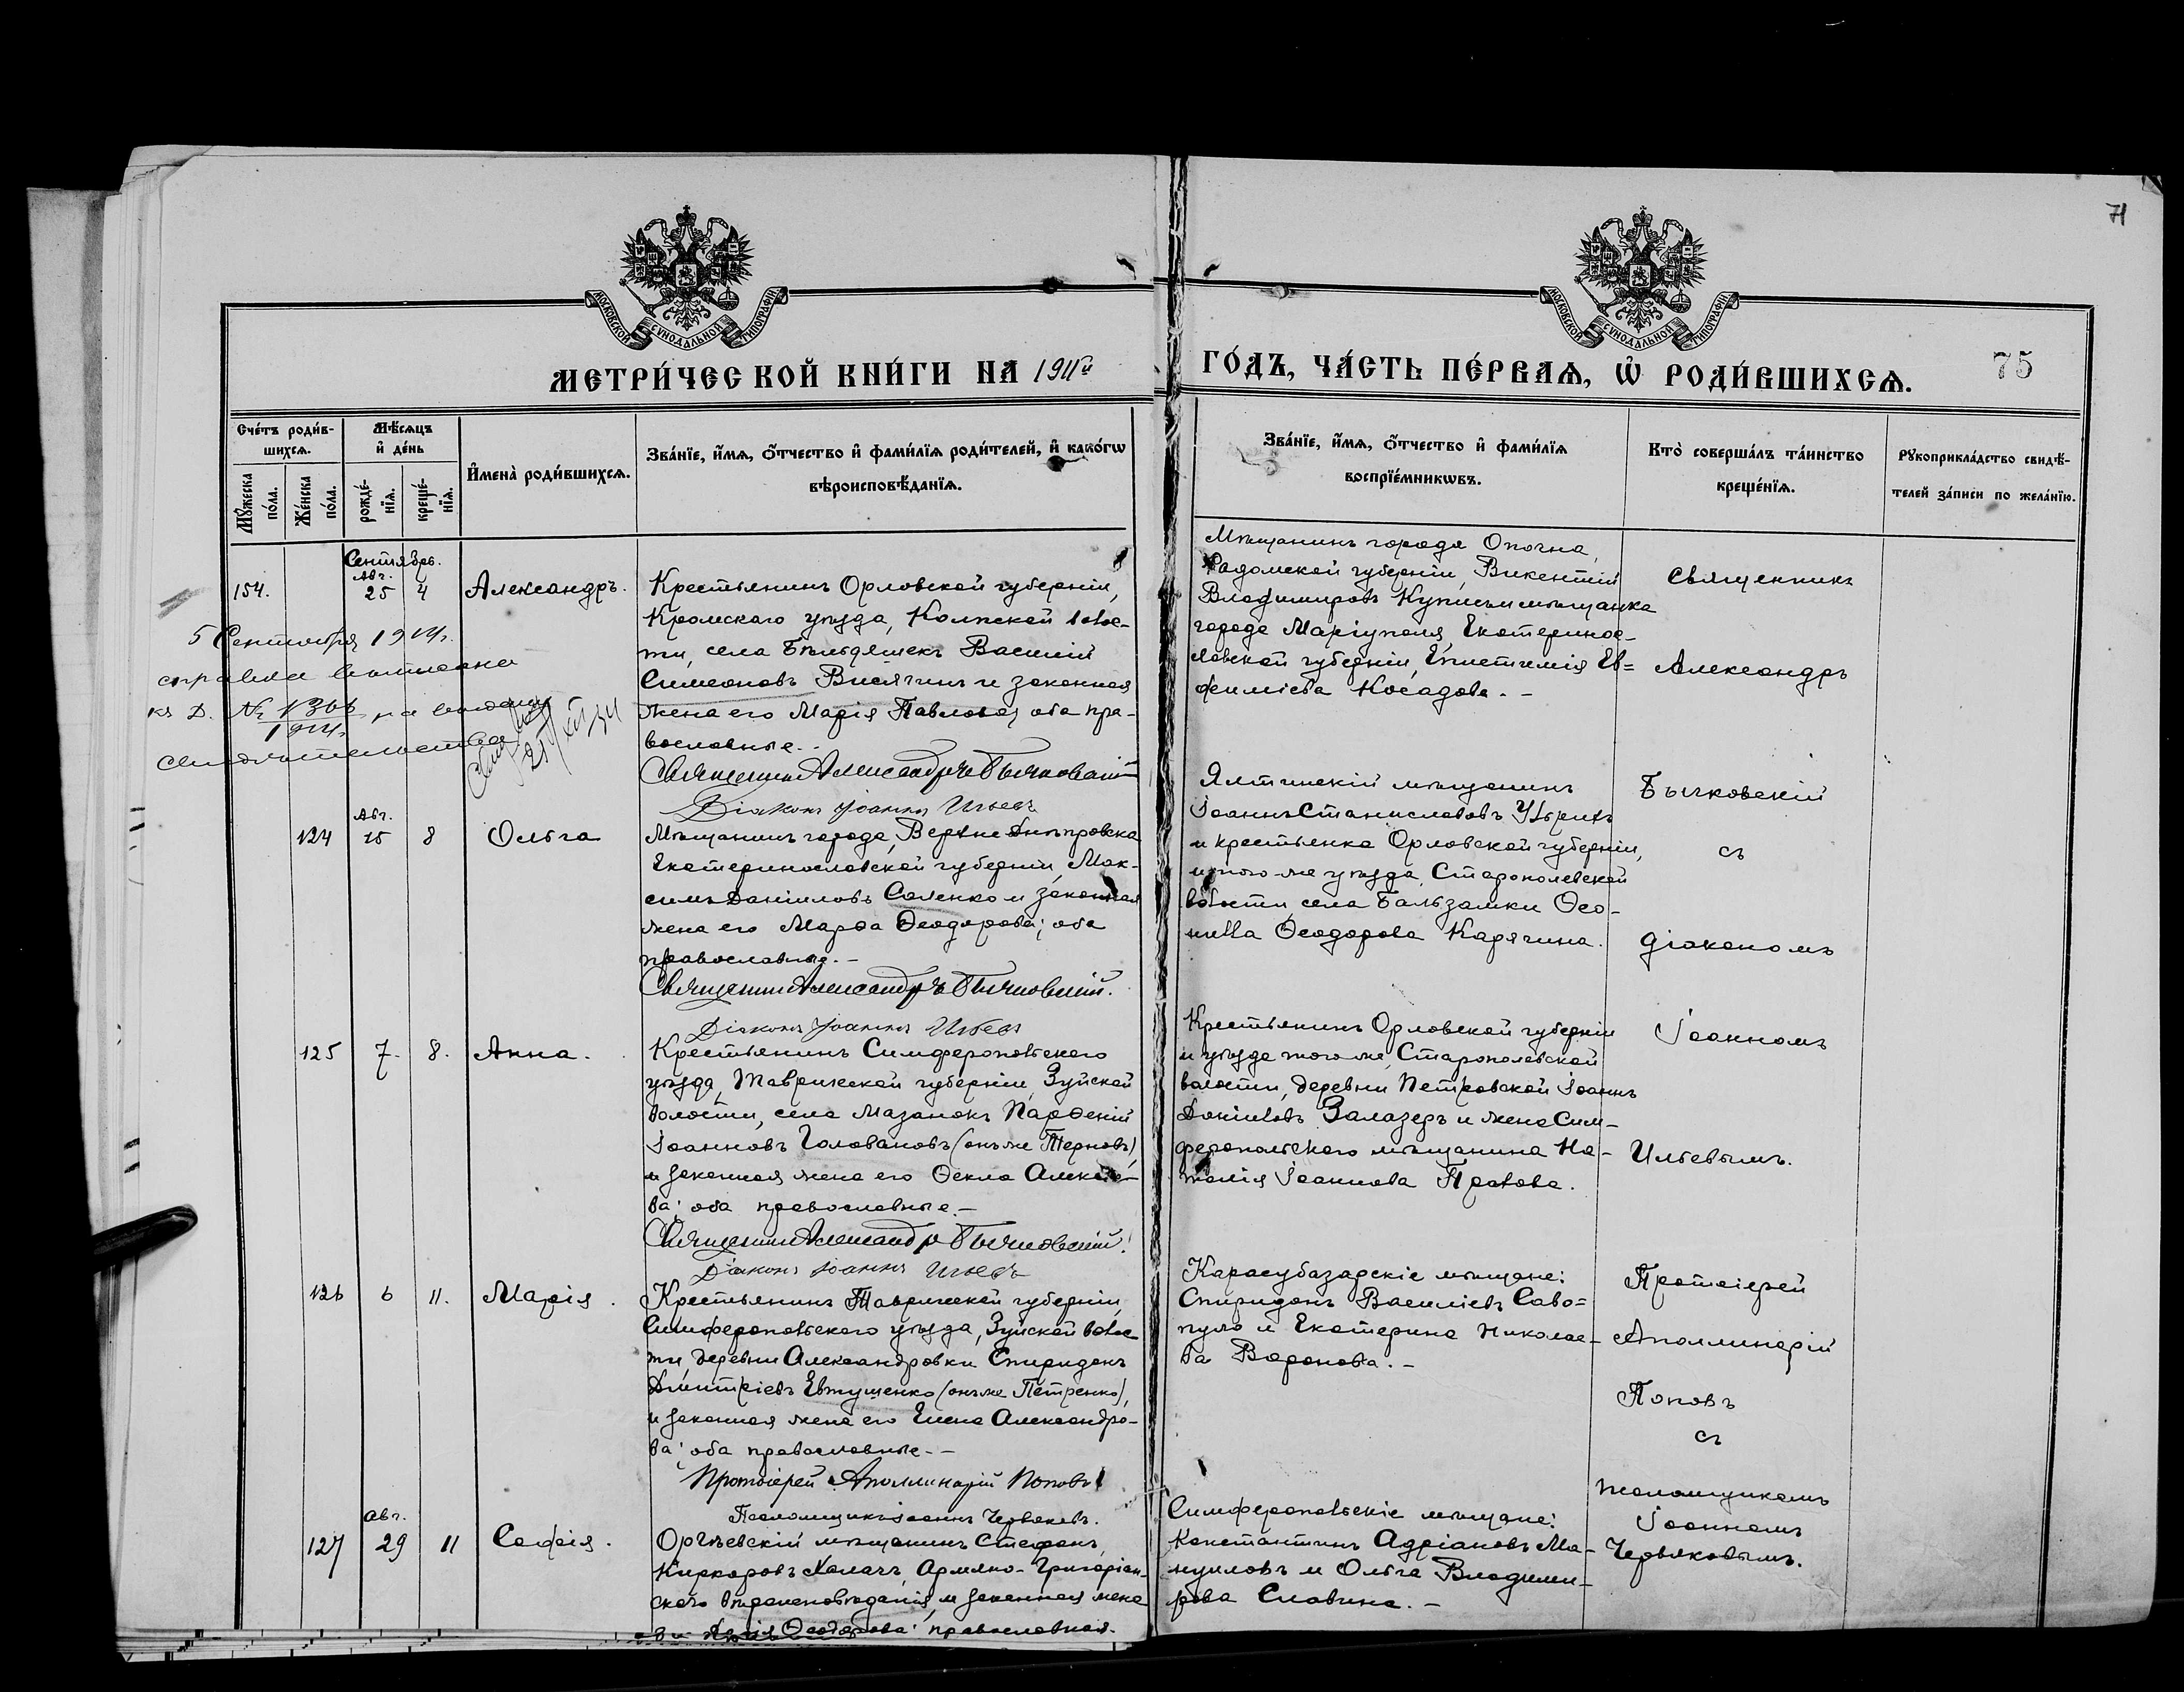 71
МОСКОВСКОЙ СУНОДАЛЬНОЙ ТИПОГРАФІИ
МОСКОВСКОЙ СУНОДАЛЬНОЙ ТИПОГРАФІИ
МЕТРИ́ЧЕСКОЙ КНИ́ГИ НА 1911й
ГО́ДЪ, ЧА́СТЬ ПЕ́РВАѦ, Ѡ҆ РОДИ́ВШИХСѦ.
75
Сче́тъ роди́в-
шихсѧ.
Мꙋ́жеска по́ла.
Же́нска по́ла.
Мѣ́сѧцъ
и҆ де́нь
рожде́-
нїѧ.
креще́-
нїѧ.
И҆мена̀ роди́вшихсѧ.
Зва́нїе, и҆́мѧ, ѻ҆́тчество и҆ фами́лїѧ роди́телей, и҆ како́гѡ
вѣроисповѣ́данїѧ.
Зва́нїе, и҆́мѧ, ѻ҆́тчество и҆ фами́лїѧ
воспрїе́мникѡвъ.
Кто̀ соверша́лъ та́инство
креще́нїѧ.
Рꙋкоприкла́дство свидѣ́-
телей за́писи по жела́нїю.
Сентябрь.
Авг.
154. 25 4 Александръ.
Крестьянинъ Орловской губерніи,
Кромскаго уѣзда, Колпской волос-
ти, села Василій
Симеоновъ Висягинъ и законная
жена его Марія Павлова, оба пра-
вославные.
Священникъ Александръ Бычковскій
Діаконъ Іоаннъ Ильевъ
5 Сентября 1914г.
справка выписана
къ Д. № 1306 на выдачу
1914г.
свидѣтельства
Мѣщанинъ города Опочна,
Радомской губерніи, Викентій
Владимировъ и мѣщанка
города Маріуполя, Екатеринос-
лавской губерніи, Епистимія Ев-
фиміева Косадова. -
Священникъ
Александръ
Бычковскій
съ
діакономъ
Іоанномъ
Ильевымъ.
Авг.
124 15 8 Ольга
Мѣщанинъ города Верхнеднѣпровска
Екатеринославской губерніи, Мак-
симъ Даніиловъ Саленко и законная
жена его Марѳа Ѳеодорова; оба
православные. -
Священникъ Александръ Бычковскій.
Діаконъ Іоаннъ Ильевъ
Ялтинскій мѣщанинъ
Іоаннъ Станиславовъ
и крестьянка Орловской губерніи,
и того-же уѣзда, Старопольской
волости, села Бальзамки Ѳео-
Ѳеодорова Карягина.
125 7. 8. Анна.
Крестьянинъ Симферопольскаго
уѣзда, Таврической губерніи, Зуйской
волости, села Мазанокъ Парѳеній
Іоанновъ Головановъ (онъ-же Терновъ),
и законная жена его Ѳекла Алексѣе-
ва; оба православные. -
Священникъ Александръ Бычковскій.
Діаконъ Іоаннъ Ильевъ
Крестьянинъ Орловской губерніи
и уѣзда того-же, Старопольской
волости, деревни Петровской Іоаннъ
Даніиловъ Залазеръ и жена Сим-
феропольскаго мѣщанина На-
талія Іоаннова Пратова.
126 6 11. Марія.
Крестьянинъ Таврической губерніи,
Симферопольскаго уѣзда, Зуйской волос-
ти, деревни Александровки Спиридонъ
Дмитріевъ Евтушенко (онъ-же Петренко),
и законная жена его Елена Александро-
ва; оба православные. -
Протоіерей Аполлинарій Поповъ
Псаломщикъ Іоаннъ Червяковъ.
Карасубазарскіе мѣщане:
Спиридонъ Василіевъ Саво-
пуло и Екатерина Николае-
ва Воронова. -
Протоіерей
Аполлинарій
Поповъ
съ
псаломщикомъ
Іоанномъ
Червяковымъ.
Авг.
127 29 11 Софія.
Оргѣевскій мѣщанинъ Стефанъ
Киркоровъ Халачъ, Армяно-Григоріан-
скаго вѣроисповѣданія, и законная жена
Ѳеодорова; православная.
Симферопольскіе мѣщане:
Константинъ Адріановъ Ма-
нуиловъ и Ольга Владими-
рова Славина. -